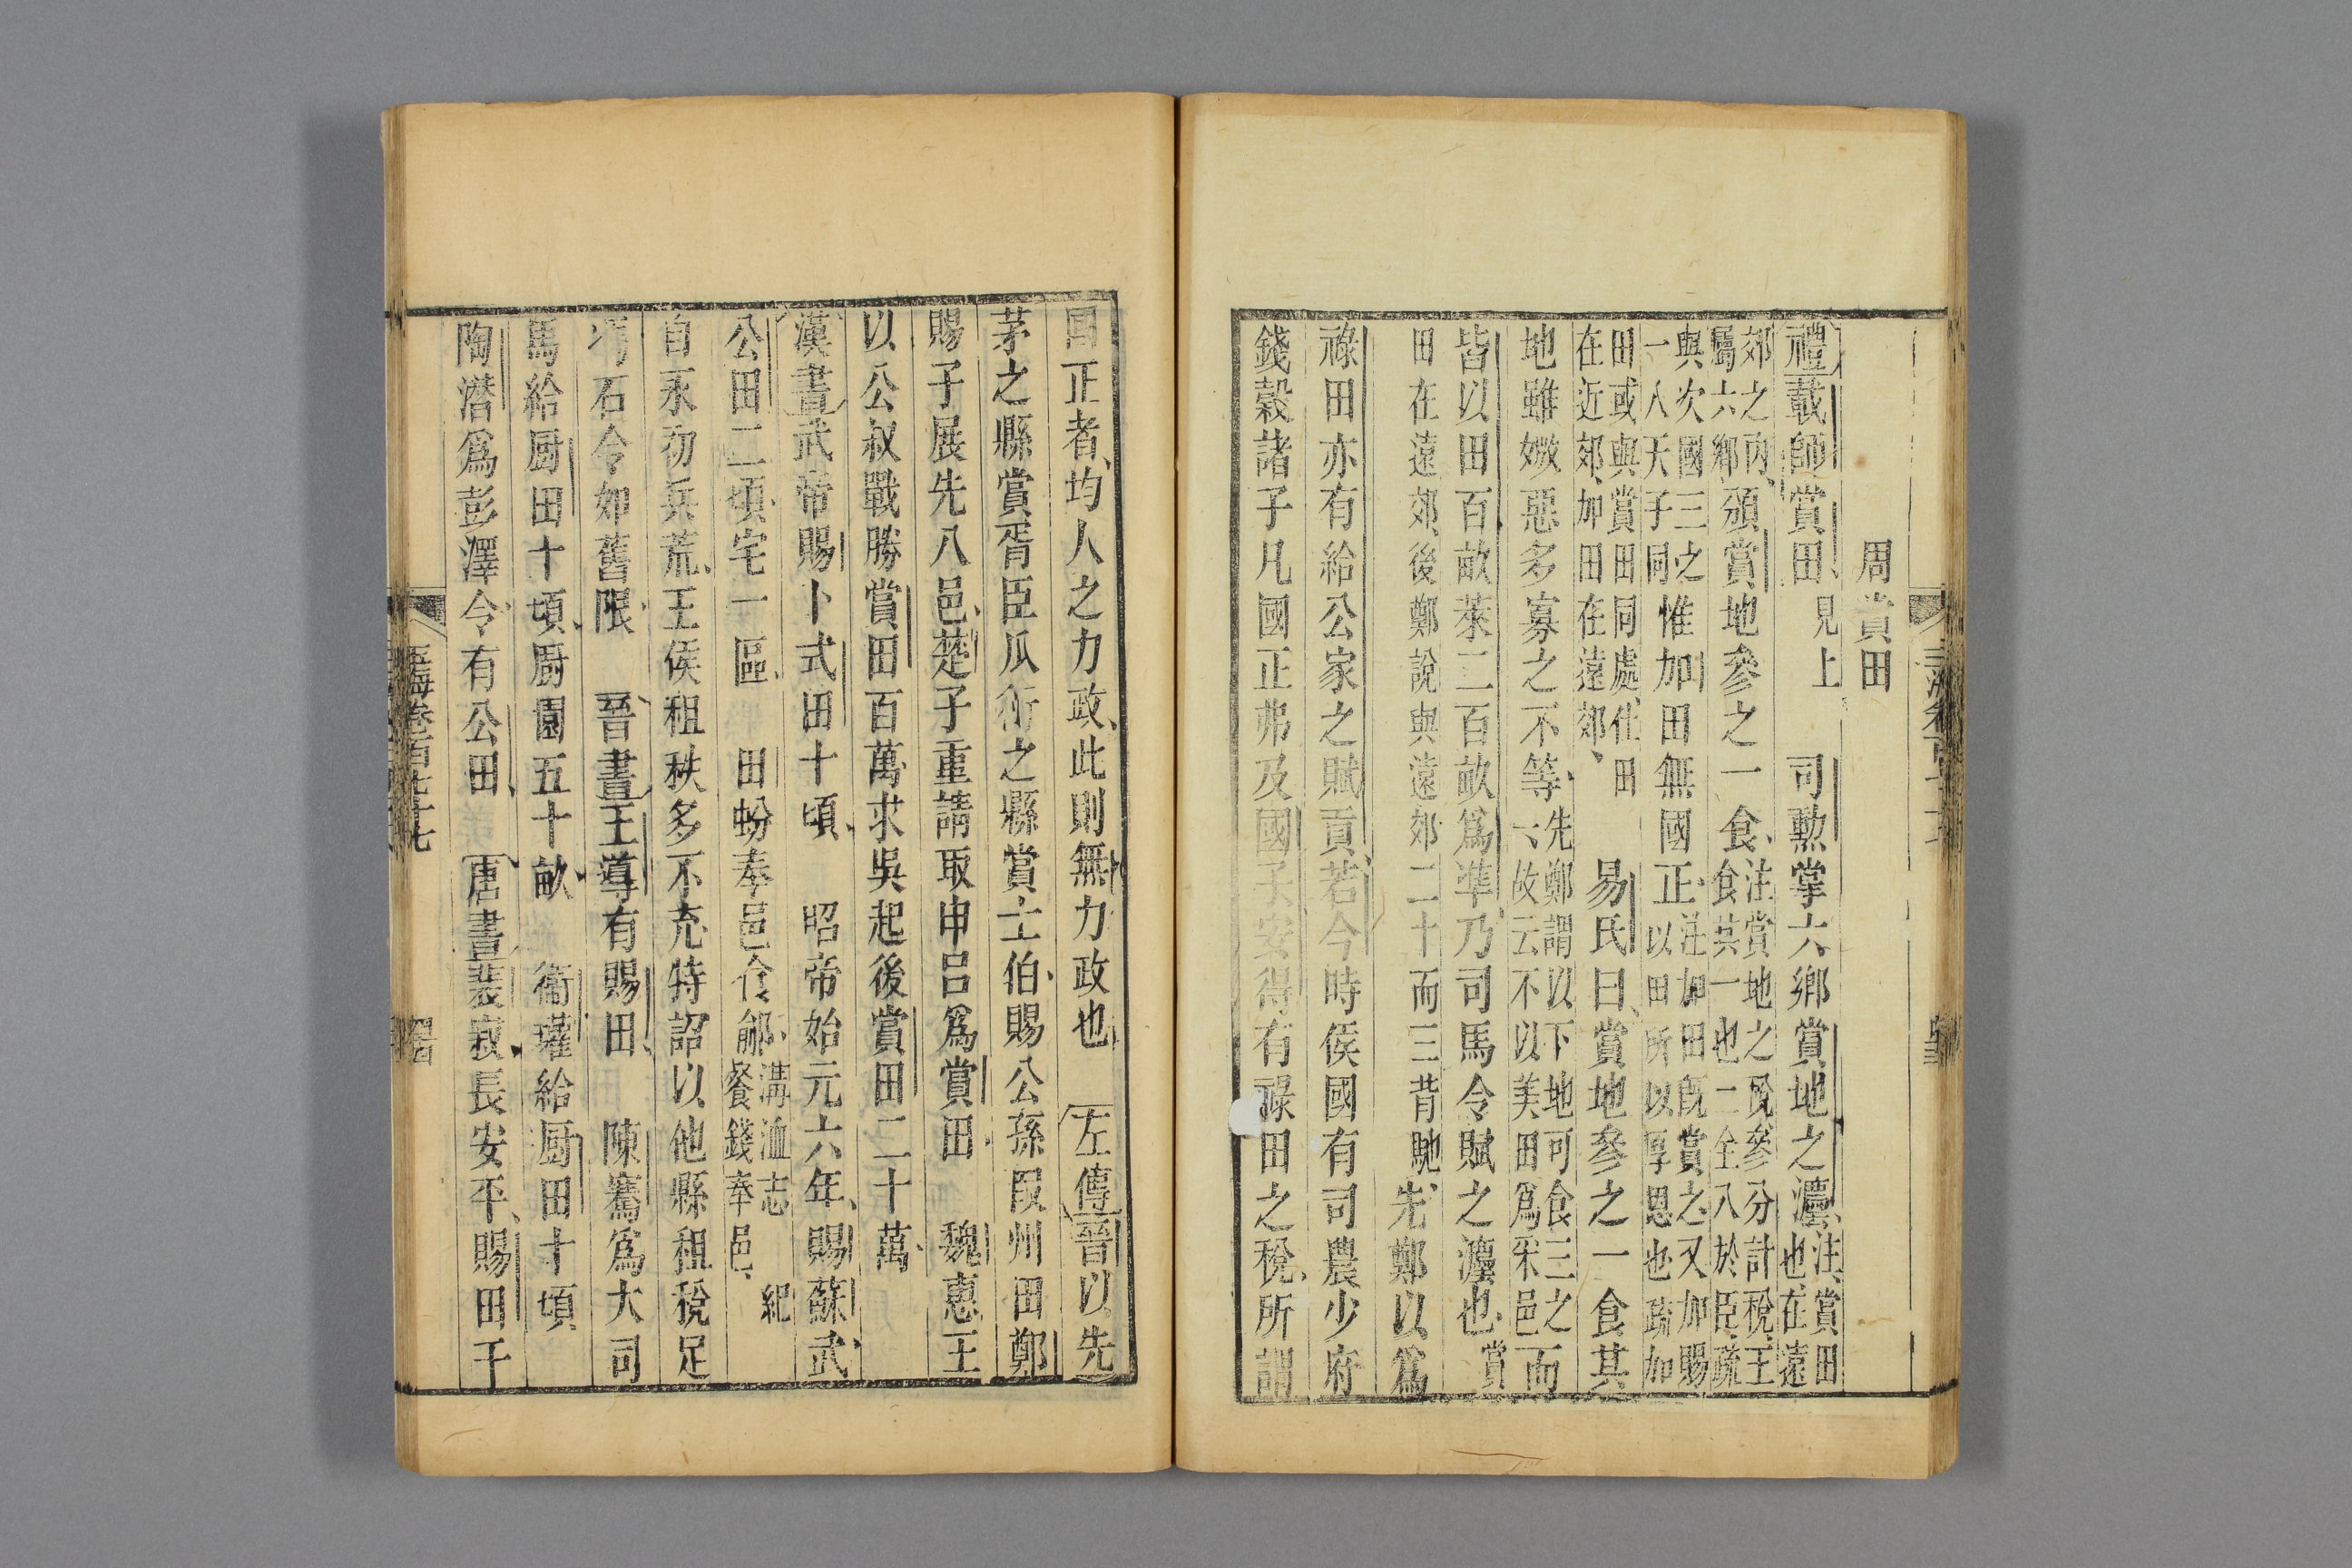 周賞田
禮載師賞田見上 司勲掌六鄉賞地之灋注賞田也在遠
郊之內屬六鄉頒賞地參之一食注賞地之稅參分計稅王食其一也二全入於臣疏
與次國三之一入天子同惟加田無國正注加田旣賞之又加賜以田所以厚恩也疏加
田或與賞田同處仕田在近郊加田在遠郊 易氏曰賞地參之一食其
地雖媺惡多寡之不等先鄭謂以下地可食三之一故云不以美田爲采邑而
皆以田百畝萊二百畝爲準乃司馬令賦之灋也賞
田在遠郊後鄭說與遠郊二十而三背馳先鄭以爲
祿田亦有給公家之賦貢若今時侯國有司農少府
錢穀諸子凡國正弗及國子安得有祿田之稅所謂
國正者均人之力政此則無力政也 左傳晉以先
茅之縣賞胥臣瓜衍之縣賞士伯賜公孫段州田鄭
賜子展先八邑楚子重請取申呂爲賞田 魏惠王
以公叔戰勝賞田百萬求吳起後賞田二十萬
漢書武帝賜卜式田十頃 昭帝始元六年賜蘇武
公田二頃宅一區 田蚡奉邑食鄃溝洫志 餐錢奉邑紀
自永初兵荒王侯租秩多不充特詔以他縣租稅足
石令如舊限 晉書王導有賜田 陳騫爲大司
馬給厨田十頃厨園五十畝 衞瓘給厨田十頃
陶潛爲彭澤令有公田 唐書裴寂長安平賜田千
玉海卷百七十七